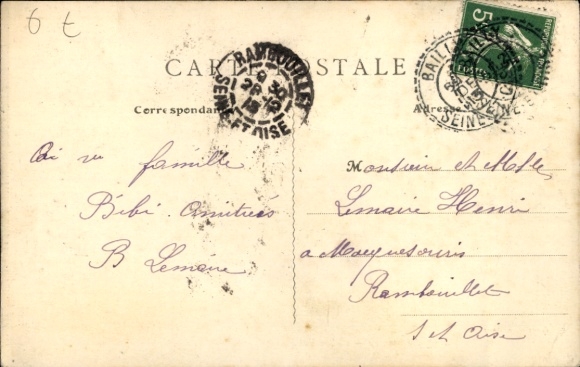 6 t
CARTE POSTALE
RAMBOUILLET
SEINE-ET-OISE
BAILLY
SEINE
5
Correspondance
Adresse
Ai vu famille
Bébé. Amitiés
B Lemaire
Monsieur et Melle
Lemaire Henri
a Mocquesouris
Rambouillet
S et Oise